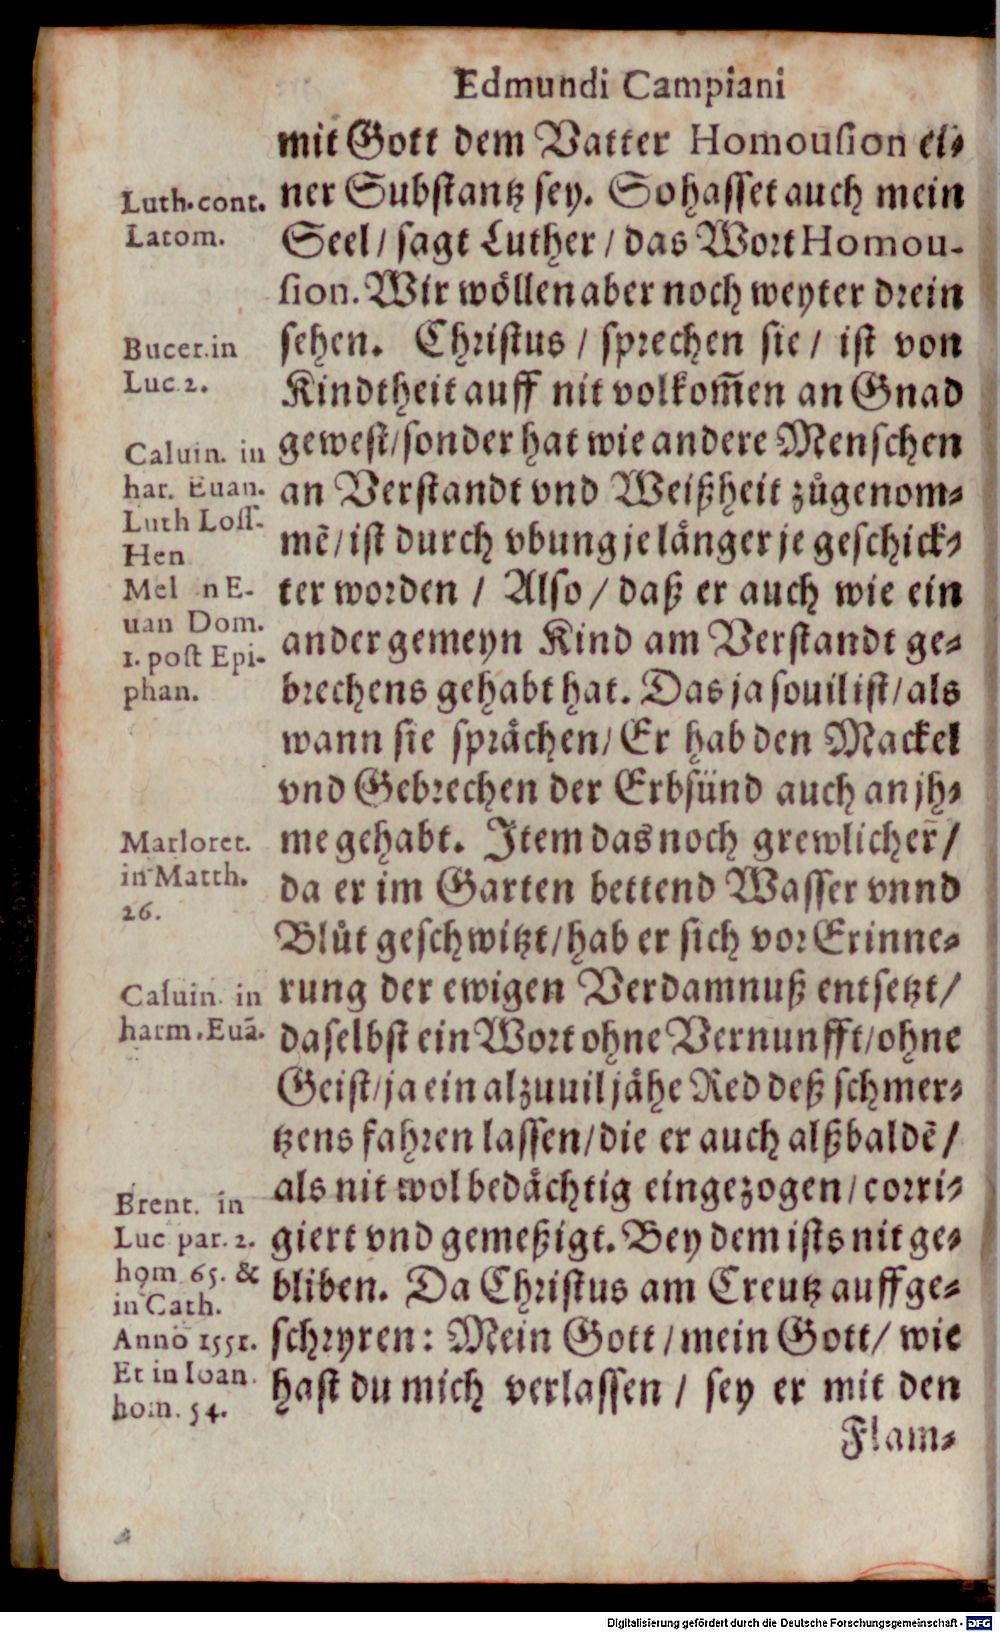 Edmundi Campiani
mit Gott dem Vatter Homousion ei⸗
ner Substantz sey. So hasset auch mein
Seel / sagt Luther / das Wort Homou-
sion. Wir wöllen aber noch weyter drein
sehen. Christus / sprechen sie / ist von
Kindtheit auff nit volkom̃en an Gnad
gewest / sonder hat wie andere Menschen
an Verstandt vnd Weißheit zůgenom⸗
mẽ / ist durch vbung je länger je geschick⸗
ter worden / Also / daß er auch wie ein
ander gemeyn Kind am Verstandt ge⸗
brechens gehabt hat. Das ja souil ist / als
wann sie sprächen / Er hab den Mackel
vnd Gebrechen der Erbsünd auch an jh⸗
me gehabt. Item das noch grewlicher̃ /
da er im Garten bettend Wasser vnnd
Blůt geschwitzt / hab er sich vor Erinne⸗
rung der ewigen Verdamnuß entsetzt /
daselbst ein Wort ohne Vernunfft / ohne
Geist / ja ein alzuuil jähe Red deß schmer⸗
tzens fahren lassen / die er auch alßbaldẽ /
als nit wol bedächtig eingezogen / corri⸗
giert vnd gemeßigt. Bey dem ists nit ge⸗
bliben. Da Christus am Creutz auffge⸗
schryren: Mein Gott / mein Gott / wie
hast du mich verlassen / sey er mit den
Flam⸗
Luth. cont.
Latom.
Bucer. in
Luc. 2.
Caluin. in
har. Euan.
Luth Loss-
Hen
Mel n E-
uan Dom.
1. post Epi-
phan.
Marloret.
in Matth.
26.
Caluin. in
harm. Euã.
Brent. in
Luc par. 2.
hom 65. &
in Cath.
Anno 1551.
Et in Ioan.
hom. 54.
Digitalisierung gefördert durch die Deutsche Forschungsgemeinschaft - DFG